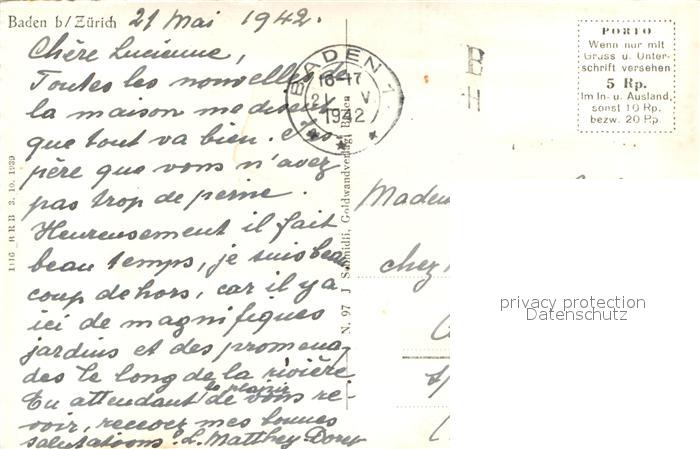 Baden b/Zürich 21 Mai 1942.
Chère Lucienne,
Toutes les nouvelles de
la maison me disent
que tout va bien. J'es-
père que vous n'avez
pas trop de peine.
Heureusement il fait
beau temps, je suis beau
coup dehors, car il y a
ici de magnifiques
jardins et des promena-
des le long de la rivière.
En attendant le plaisir de vous re-
voir, recevez mes bonnes
salutations. L. Matthey Dorey
1116 BRB 3. 10. 1939
N. 97 J Schmidli, Goldwandverlag Baden
BADEN 1
16-17
21 V
1942
B
H
PORTO
Wenn nur mit
Gruss u. Unter-
schrift versehen
5 Rp.
Im In- u. Ausland,
sonst 10 Rp.
bezw. 20 Rp.
Madem
chez
privacy protection
Datenschutz